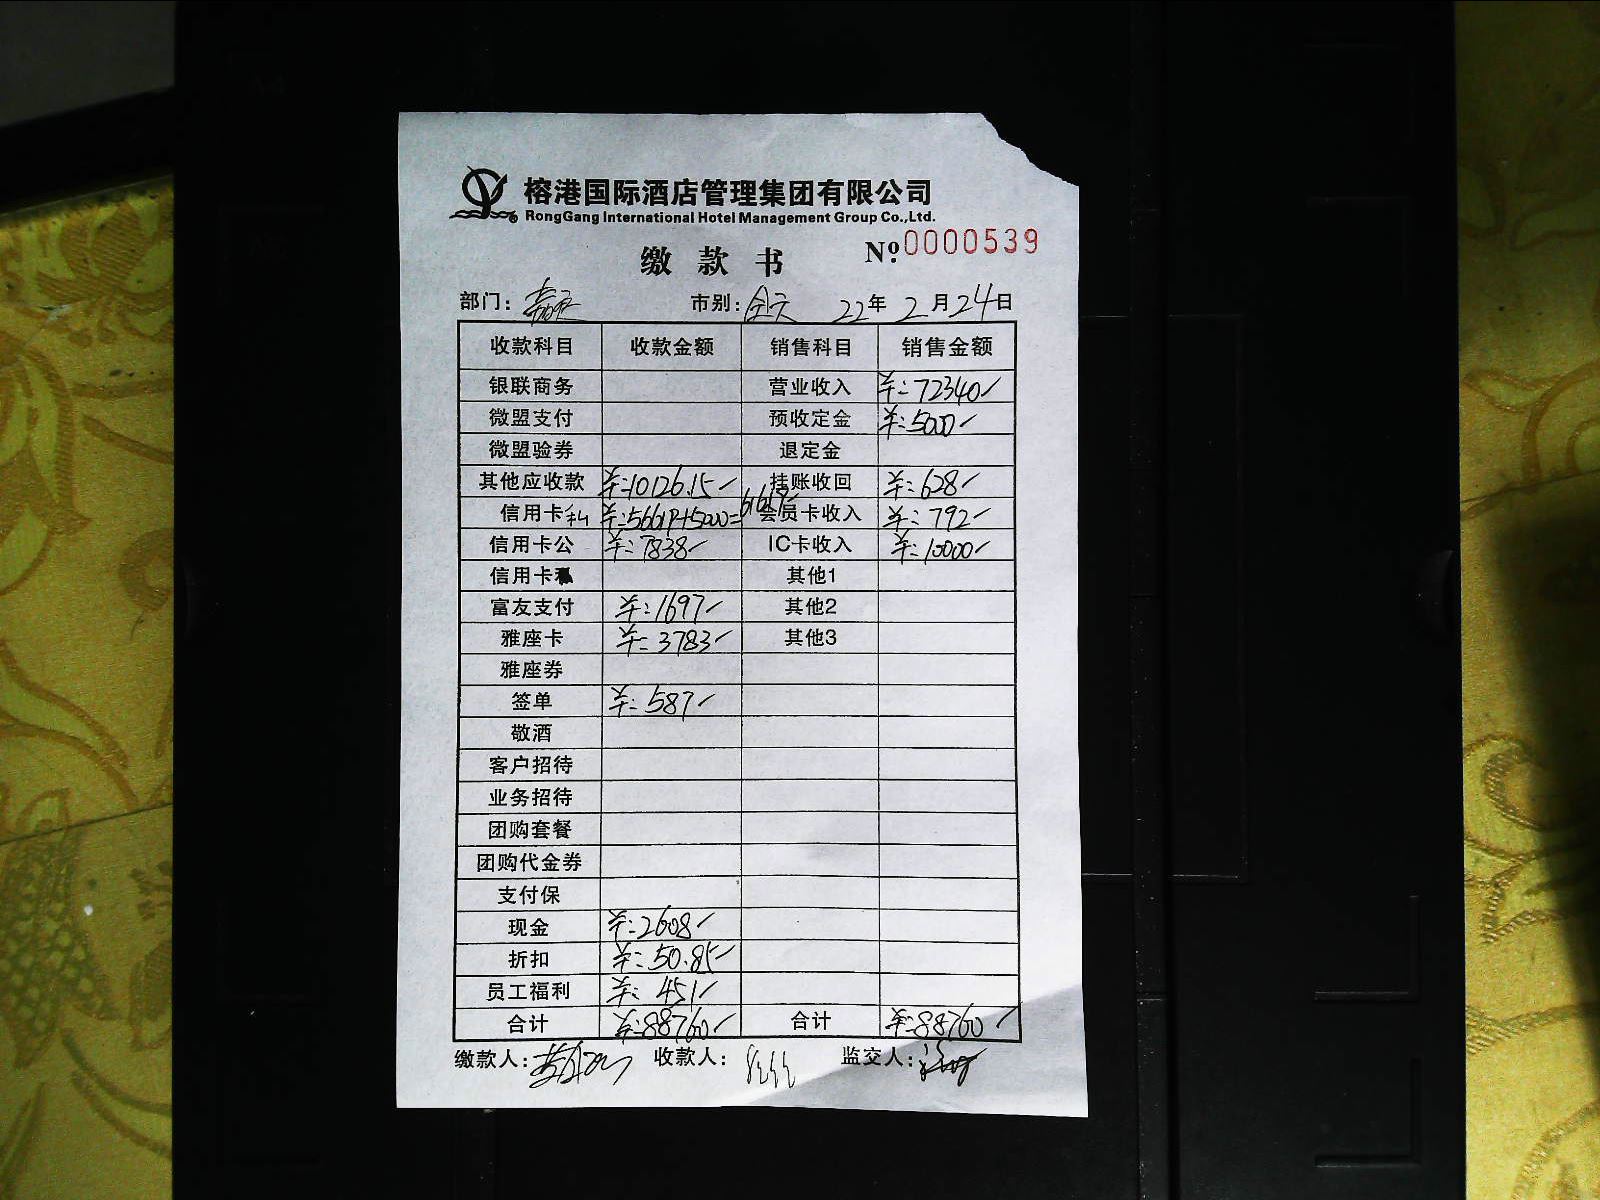 榕港国际酒店管理集团有限公司
RongGang International Hotel Management Group Co.,Ltd.
缴款书 №:0000539
部门: 市别:全天 22年2月24日
收款科目 收款金额 销售科目 销售金额
银联商务 营业收入 ¥:72340
微盟支付 预收定金 ¥:5000
微盟验券 退定金
其他应收款 ¥:10126.15 挂账收回 ¥:628
信用卡私 ¥:56619+5000=61619 会员卡收入 ¥:792
信用卡公 ¥:7838 IC卡收入 ¥:10000
信用卡私 其他1
富友支付 ¥:1697 其他2
雅座卡 ¥:3783 其他3
雅座券
签单 ¥:587
敬酒
客户招待
业务招待
团购套餐
团购代金券
支付保
现金 ¥:2608
折扣 ¥:50.85
员工福利 ¥:451
合计 ¥:88760 合计 ¥:88760
缴款人: 收款人: 监交人: